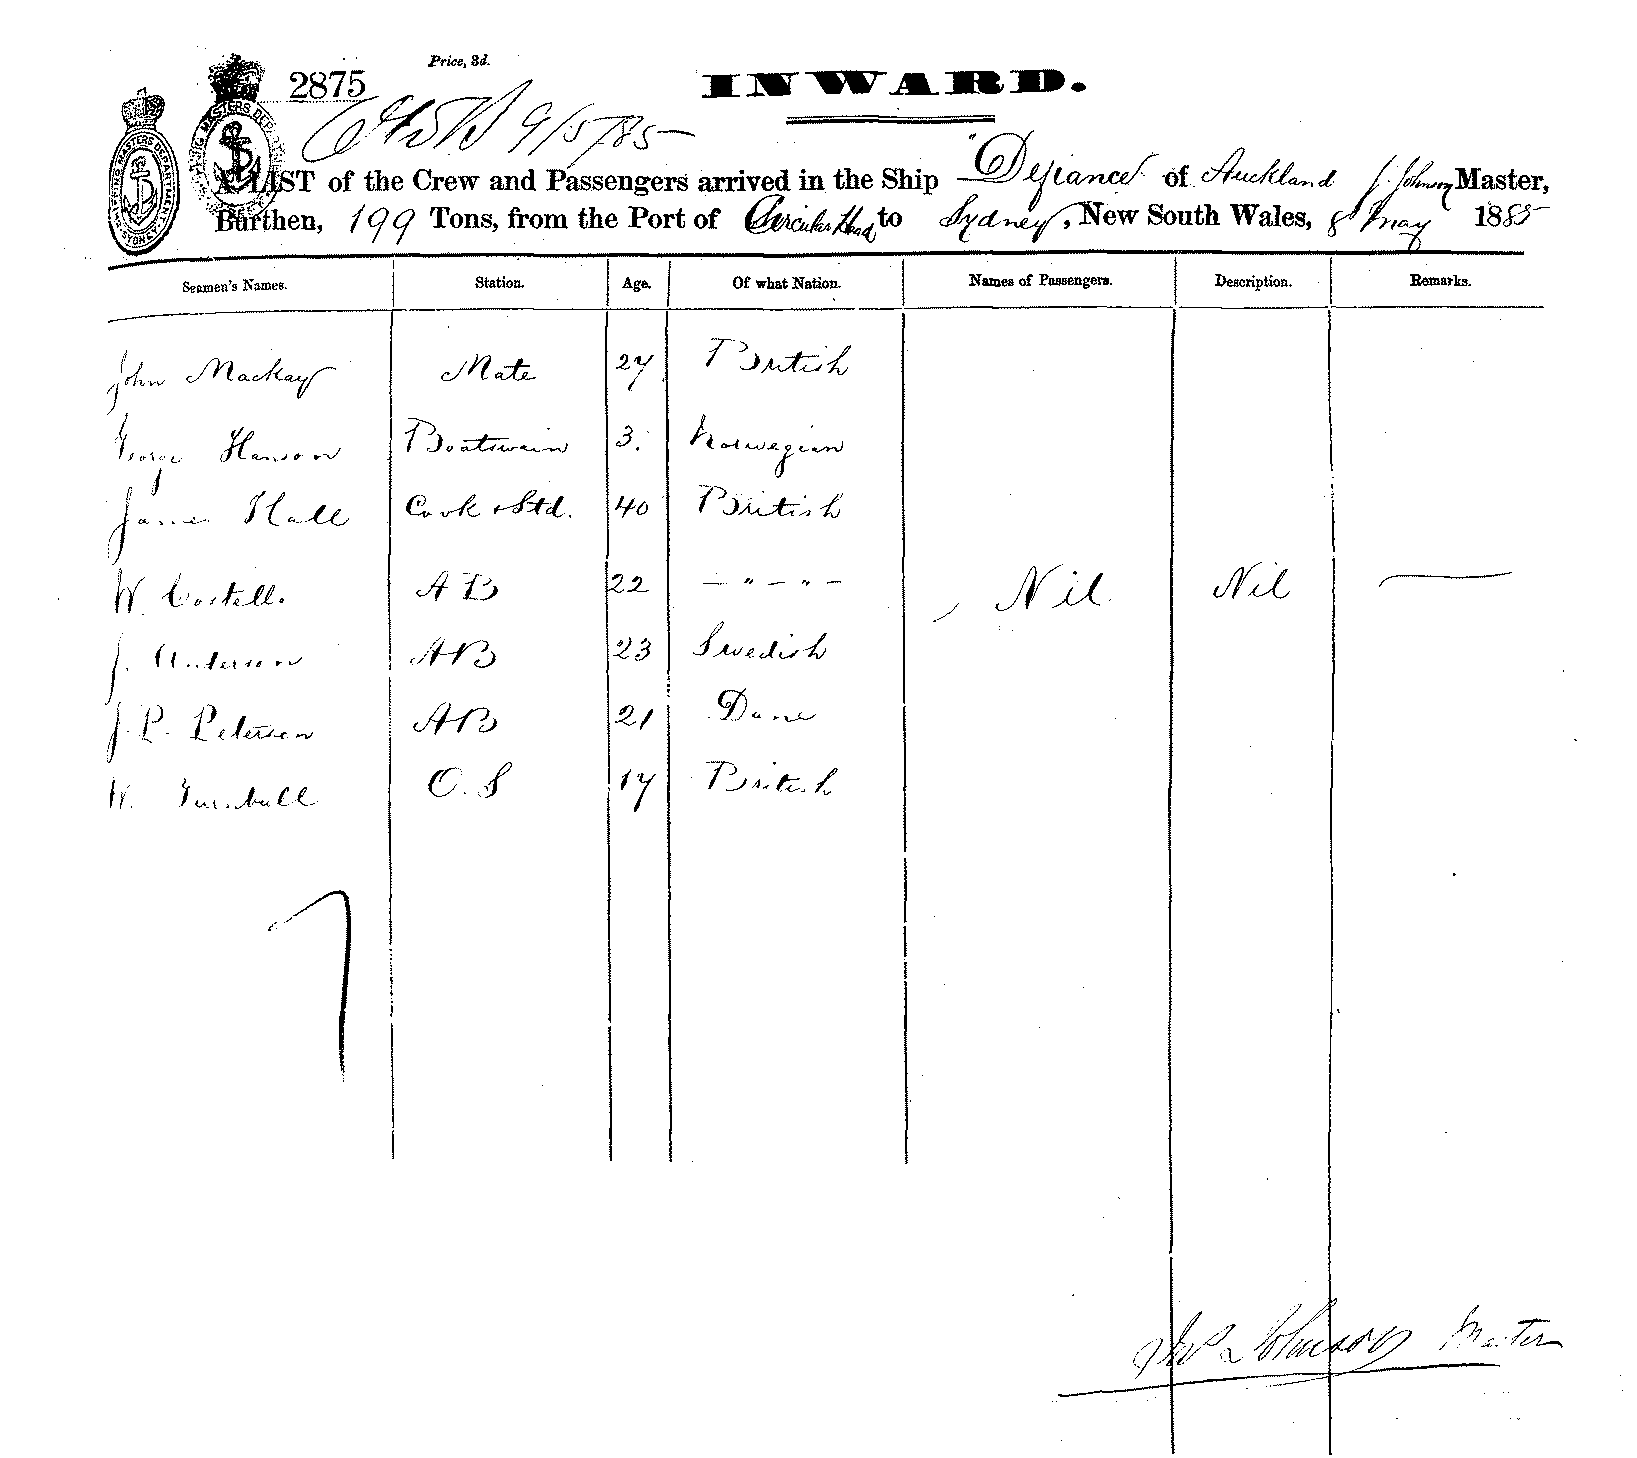 Price, 3d.
2875
INWARD.
9/5/85
A LIST of the Crew and Passengers arrived in the Ship "Defiance" of Auckland J. Johnson Master,
Burthen, 199 Tons, from the Port of Circular Head to Sydney, New South Wales, 8 May 1885
Seamen's Names. Station. Age. Of what Nation. Names of Passengers. Description. Remarks.
John Mackay Mate 27 British
George Hanson Boatswain 3. Norwegian
James Hall Cook & Std. 40 British
W. Costello AB 22 — " — " — Nil Nil —
J. Anderson AB 23 Swedish
J. P. Petersen AB 21 Dane
W. Turnbull O.S 17 British
7
Johnson Master